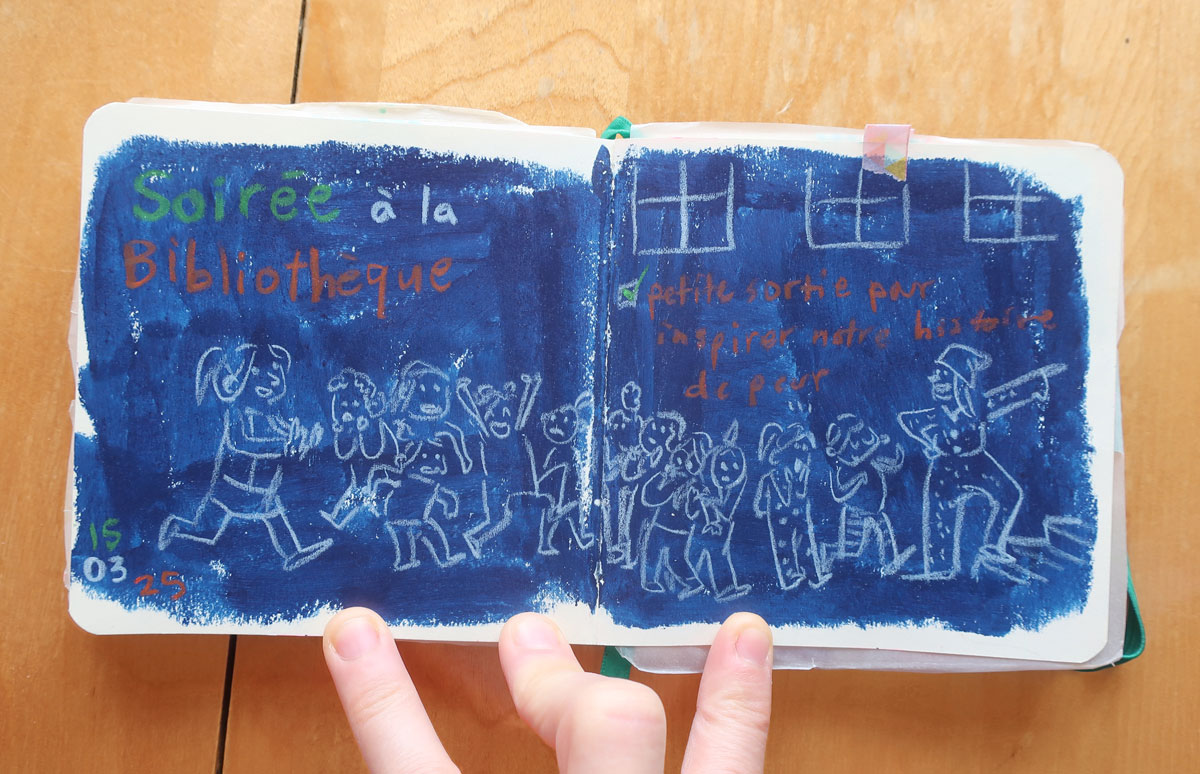 Soirée à la
Bibliothèque
petite sortie pour
inspirer notre histoire
de peur
15
03
25